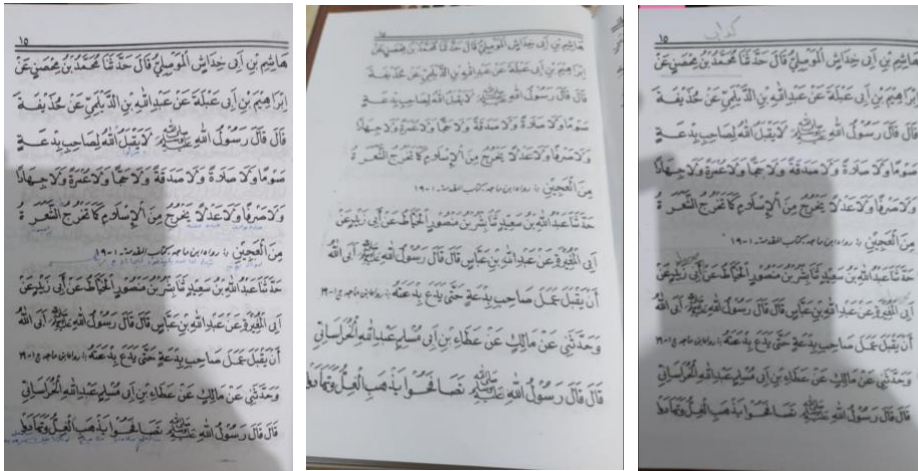 ١٥
هَاشِمِ بْنِ اَبِى خِدَاشٍ الْمَوْصِلِيُّ قَالَ حَدَّثَنَا مُحَمَّدُ بْنُ مِحْصَنٍ عَنْ
اِبْرَاهِيْمَ بْنِ اَبِى عَبْلَةَ عَنْ عَبْدِ اللهِ بْنِ الدَّيْلَمِيِّ عَنْ حُذَيْفَةَ
قَالَ قَالَ رَسُوْلُ اللهِ ﷺ لَا يَقْبَلُ اللهُ لِصَاحِبِ بِدْعَةٍ
صَوْمًا وَلَا صَلَاةً وَلَا صَدَقَةً وَلَا حَجًّا وَلَا عُمْرَةً وَلَا جِهَادًا
وَلَا صَرْفًا وَلَا عَدْلًا يَخْرُجُ مِنَ الْاِسْلَامِ كَمَا تَخْرُجُ الشَّعْرَةُ
مِنَ الْعَجِيْنِ رواه ابن ماجه كتاب المقدمة ١-١٩
حَدَّثَنَا عَبْدُ اللهِ بْنُ سَعِيْدٍ ثَنَا بِشْرُ بْنُ مَنْصُوْرٍ الْخَيَّاطُ عَنْ اَبِى زَيْدٍ عَنْ
اَبِى الْمُغِيْرَةِ عَنْ عَبْدِ اللهِ بْنِ عَبَّاسٍ قَالَ قَالَ رَسُوْلُ اللهِ ﷺ اَبَى اللهُ
اَنْ يَقْبَلَ عَمَلَ صَاحِبِ بِدْعَةٍ حَتَّى يَدَعَ بِدْعَتَهُ رواه ابن ماجه ج ١-١٩
وَحَدَّثَنِى عَنْ مَالِكٍ عَنْ عَطَاءِ بْنِ اَبِى مُسْلِمٍ عَبْدِ اللهِ الْخُرَاسَانِي
قَالَ قَالَ رَسُوْلُ اللهِ ﷺ تَصَافَحُوْا يَذْهَبِ الْغِلُّ وَتَهَادَوْا
١٥
هَاشِمِ بْنِ اَبِى خِدَاشٍ الْمَوْصِلِيُّ قَالَ حَدَّثَنَا مُحَمَّدُ بْنُ مِحْصَنٍ عَنْ
اِبْرَاهِيْمَ بْنِ اَبِى عَبْلَةَ عَنْ عَبْدِ اللهِ بْنِ الدَّيْلَمِيِّ عَنْ حُذَيْفَةَ
قَالَ قَالَ رَسُوْلُ اللهِ ﷺ لَا يَقْبَلُ اللهُ لِصَاحِبِ بِدْعَةٍ
صَوْمًا وَلَا صَلَاةً وَلَا صَدَقَةً وَلَا حَجًّا وَلَا عُمْرَةً وَلَا جِهَادًا
وَلَا صَرْفًا وَلَا عَدْلًا يَخْرُجُ مِنَ الْاِسْلَامِ كَمَا تَخْرُجُ الشَّعْرَةُ
مِنَ الْعَجِيْنِ رواه ابن ماجه كتاب المقدمة ١-١٩
حَدَّثَنَا عَبْدُ اللهِ بْنُ سَعِيْدٍ ثَنَا بِشْرُ بْنُ مَنْصُوْرٍ الْخَيَّاطُ عَنْ اَبِى زَيْدٍ عَنْ
اَبِى الْمُغِيْرَةِ عَنْ عَبْدِ اللهِ بْنِ عَبَّاسٍ قَالَ قَالَ رَسُوْلُ اللهِ ﷺ اَبَى اللهُ
اَنْ يَقْبَلَ عَمَلَ صَاحِبِ بِدْعَةٍ حَتَّى يَدَعَ بِدْعَتَهُ رواه ابن ماجه ج ١-١٩
وَحَدَّثَنِى عَنْ مَالِكٍ عَنْ عَطَاءِ بْنِ اَبِى مُسْلِمٍ عَبْدِ اللهِ الْخُرَاسَانِي
قَالَ قَالَ رَسُوْلُ اللهِ ﷺ تَصَافَحُوْا يَذْهَبِ الْغِلُّ وَتَهَادَوْا
١٥
هَاشِمِ بْنِ اَبِى خِدَاشٍ الْمَوْصِلِيُّ قَالَ حَدَّثَنَا مُحَمَّدُ بْنُ مِحْصَنٍ عَنْ
اِبْرَاهِيْمَ بْنِ اَبِى عَبْلَةَ عَنْ عَبْدِ اللهِ بْنِ الدَّيْلَمِيِّ عَنْ حُذَيْفَةَ
قَالَ قَالَ رَسُوْلُ اللهِ ﷺ لَا يَقْبَلُ اللهُ لِصَاحِبِ بِدْعَةٍ
صَوْمًا وَلَا صَلَاةً وَلَا صَدَقَةً وَلَا حَجًّا وَلَا عُمْرَةً وَلَا جِهَادًا
وَلَا صَرْفًا وَلَا عَدْلًا يَخْرُجُ مِنَ الْاِسْلَامِ كَمَا تَخْرُجُ الشَّعْرَةُ
مِنَ الْعَجِيْنِ رواه ابن ماجه كتاب المقدمة ١-١٩
حَدَّثَنَا عَبْدُ اللهِ بْنُ سَعِيْدٍ ثَنَا بِشْرُ بْنُ مَنْصُوْرٍ الْخَيَّاطُ عَنْ اَبِى زَيْدٍ عَنْ
اَبِى الْمُغِيْرَةِ عَنْ عَبْدِ اللهِ بْنِ عَبَّاسٍ قَالَ قَالَ رَسُوْلُ اللهِ ﷺ اَبَى اللهُ
اَنْ يَقْبَلَ عَمَلَ صَاحِبِ بِدْعَةٍ حَتَّى يَدَعَ بِدْعَتَهُ رواه ابن ماجه ج ١-١٩
وَحَدَّثَنِى عَنْ مَالِكٍ عَنْ عَطَاءِ بْنِ اَبِى مُسْلِمٍ عَبْدِ اللهِ الْخُرَاسَانِي
قَالَ قَالَ رَسُوْلُ اللهِ ﷺ تَصَافَحُوْا يَذْهَبِ الْغِلُّ وَتَهَادَوْا